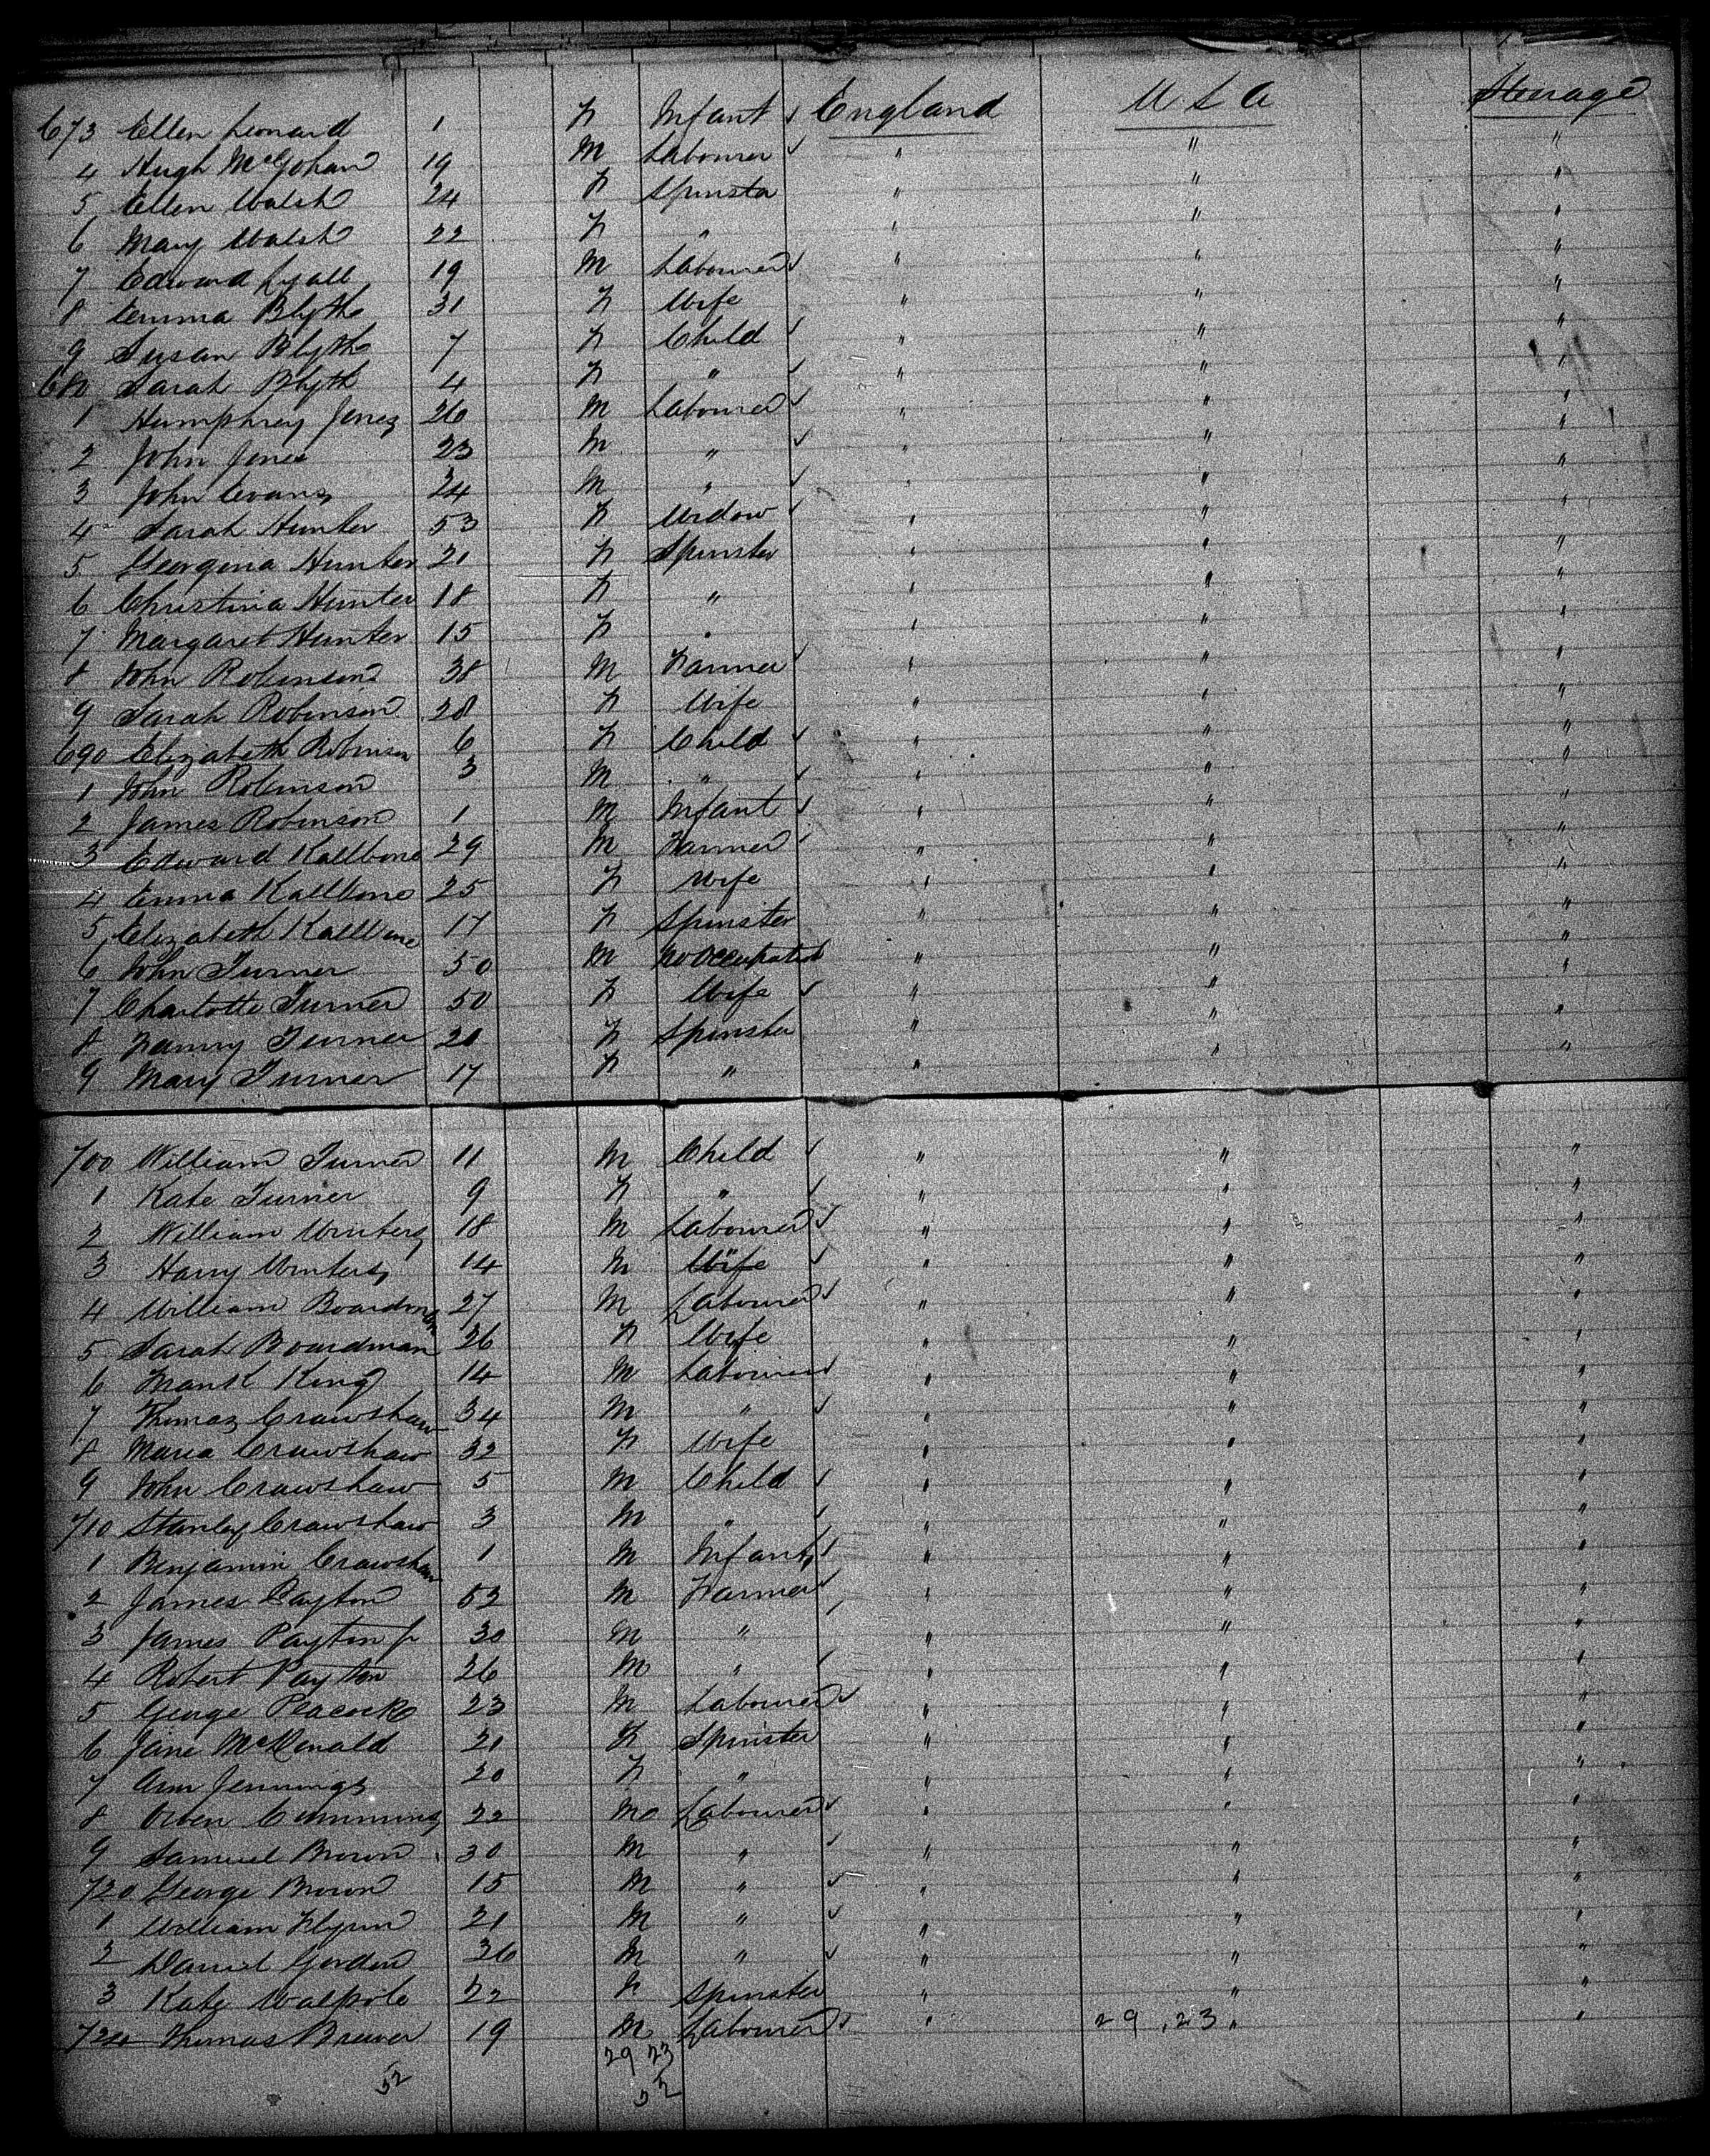 673 Ellen Leonard 1 F Infant ✓ England U S A Steerage
4 Hugh McGohan 19 M Labourer ✓ " " "
5 Ellen Walsh 24 F Spinster " " "
6 Mary Walsh 22 F " " " "
7 Edward Lyall 19 M Labourer ✓ " " "
8 Emma Blyth 31 F Wife " " "
9 Susan Blyth 7 F Child ✓ " " "
680 Sarah Blyth 4 F " ✓ " " "
1 Humphrey Jones 26 M Labourer ✓ " " "
2 John Jones 23 M " ✓ " " "
3 John Evans 24 M " ✓ " " "
4 Sarah Hunter 53 F Widow ✓ " " "
5 Georgina Hunter 21 F Spinster " " "
6 Christina Hunter 18 F " " " "
7 Margaret Hunter 15 F " " " "
8 John Robinson 38 M Farmer ✓ " " "
9 Sarah Robinson 28 F Wife " " "
690 Elizabeth Robinson 6 F Child ✓ " " "
1 John Robinson 3 M " ✓ " " "
2 James Robinson 1 M Infant ✓ " " "
3 Edward Kallbone 29 M Farmer ✓ " " "
4 Emma Kallbone 25 F Wife " " "
5 Elizabeth Kallbone 17 F Spinster " " "
6 John Turner 50 M No Occupation " " "
7 Charlotte Turner 50 F Wife ✓ " " "
8 Fanny Turner 20 F Spinster " " "
9 Mary Turner 17 F " " " "
700 William Turner 11 M Child ✓ " " "
1 Kate Turner 9 F " ✓ " " "
2 William Winters 18 M Labourer ✓ " " "
3 Harry Winters 14 M " ✓ " " "
4 William Boardman 27 M Labourer ✓ " " "
5 Sarah Boardman 26 F Wife " " "
6 Frank King 14 M Labourer ✓ " " "
7 Thomas Crawshaw 34 M " ✓ " " "
8 Maria Crawshaw 32 F Wife " " "
9 John Crawshaw 5 M Child ✓ " " "
710 Stanley Crawshaw 3 M " ✓ " " "
1 Benjamin Crawshaw 1 M Infant ✓ " " "
2 James Payton 53 M Farmer ✓ " " "
3 James Payton Jr 30 M " ✓ " " "
4 Robert Payton 26 M " ✓ " " "
5 George Peacock 23 M Labourer ✓ " " "
6 Jane McDonald 21 F Spinster " " "
7 Ann Jennings 20 F " " " "
8 Owen Cummins 22 M Labourer ✓ " " "
9 Samuel Brown 30 M " ✓ " " "
720 George Brown 15 M " ✓ " " "
1 William Flynn 21 M " ✓ " " "
2 Daniel Gordon 26 M " ✓ " " "
3 Kate Walpole 22 F Spinster " " "
724 Thomas Brewer 19 M Labourer ✓ " 29 . 23 " "
29 23
52 52